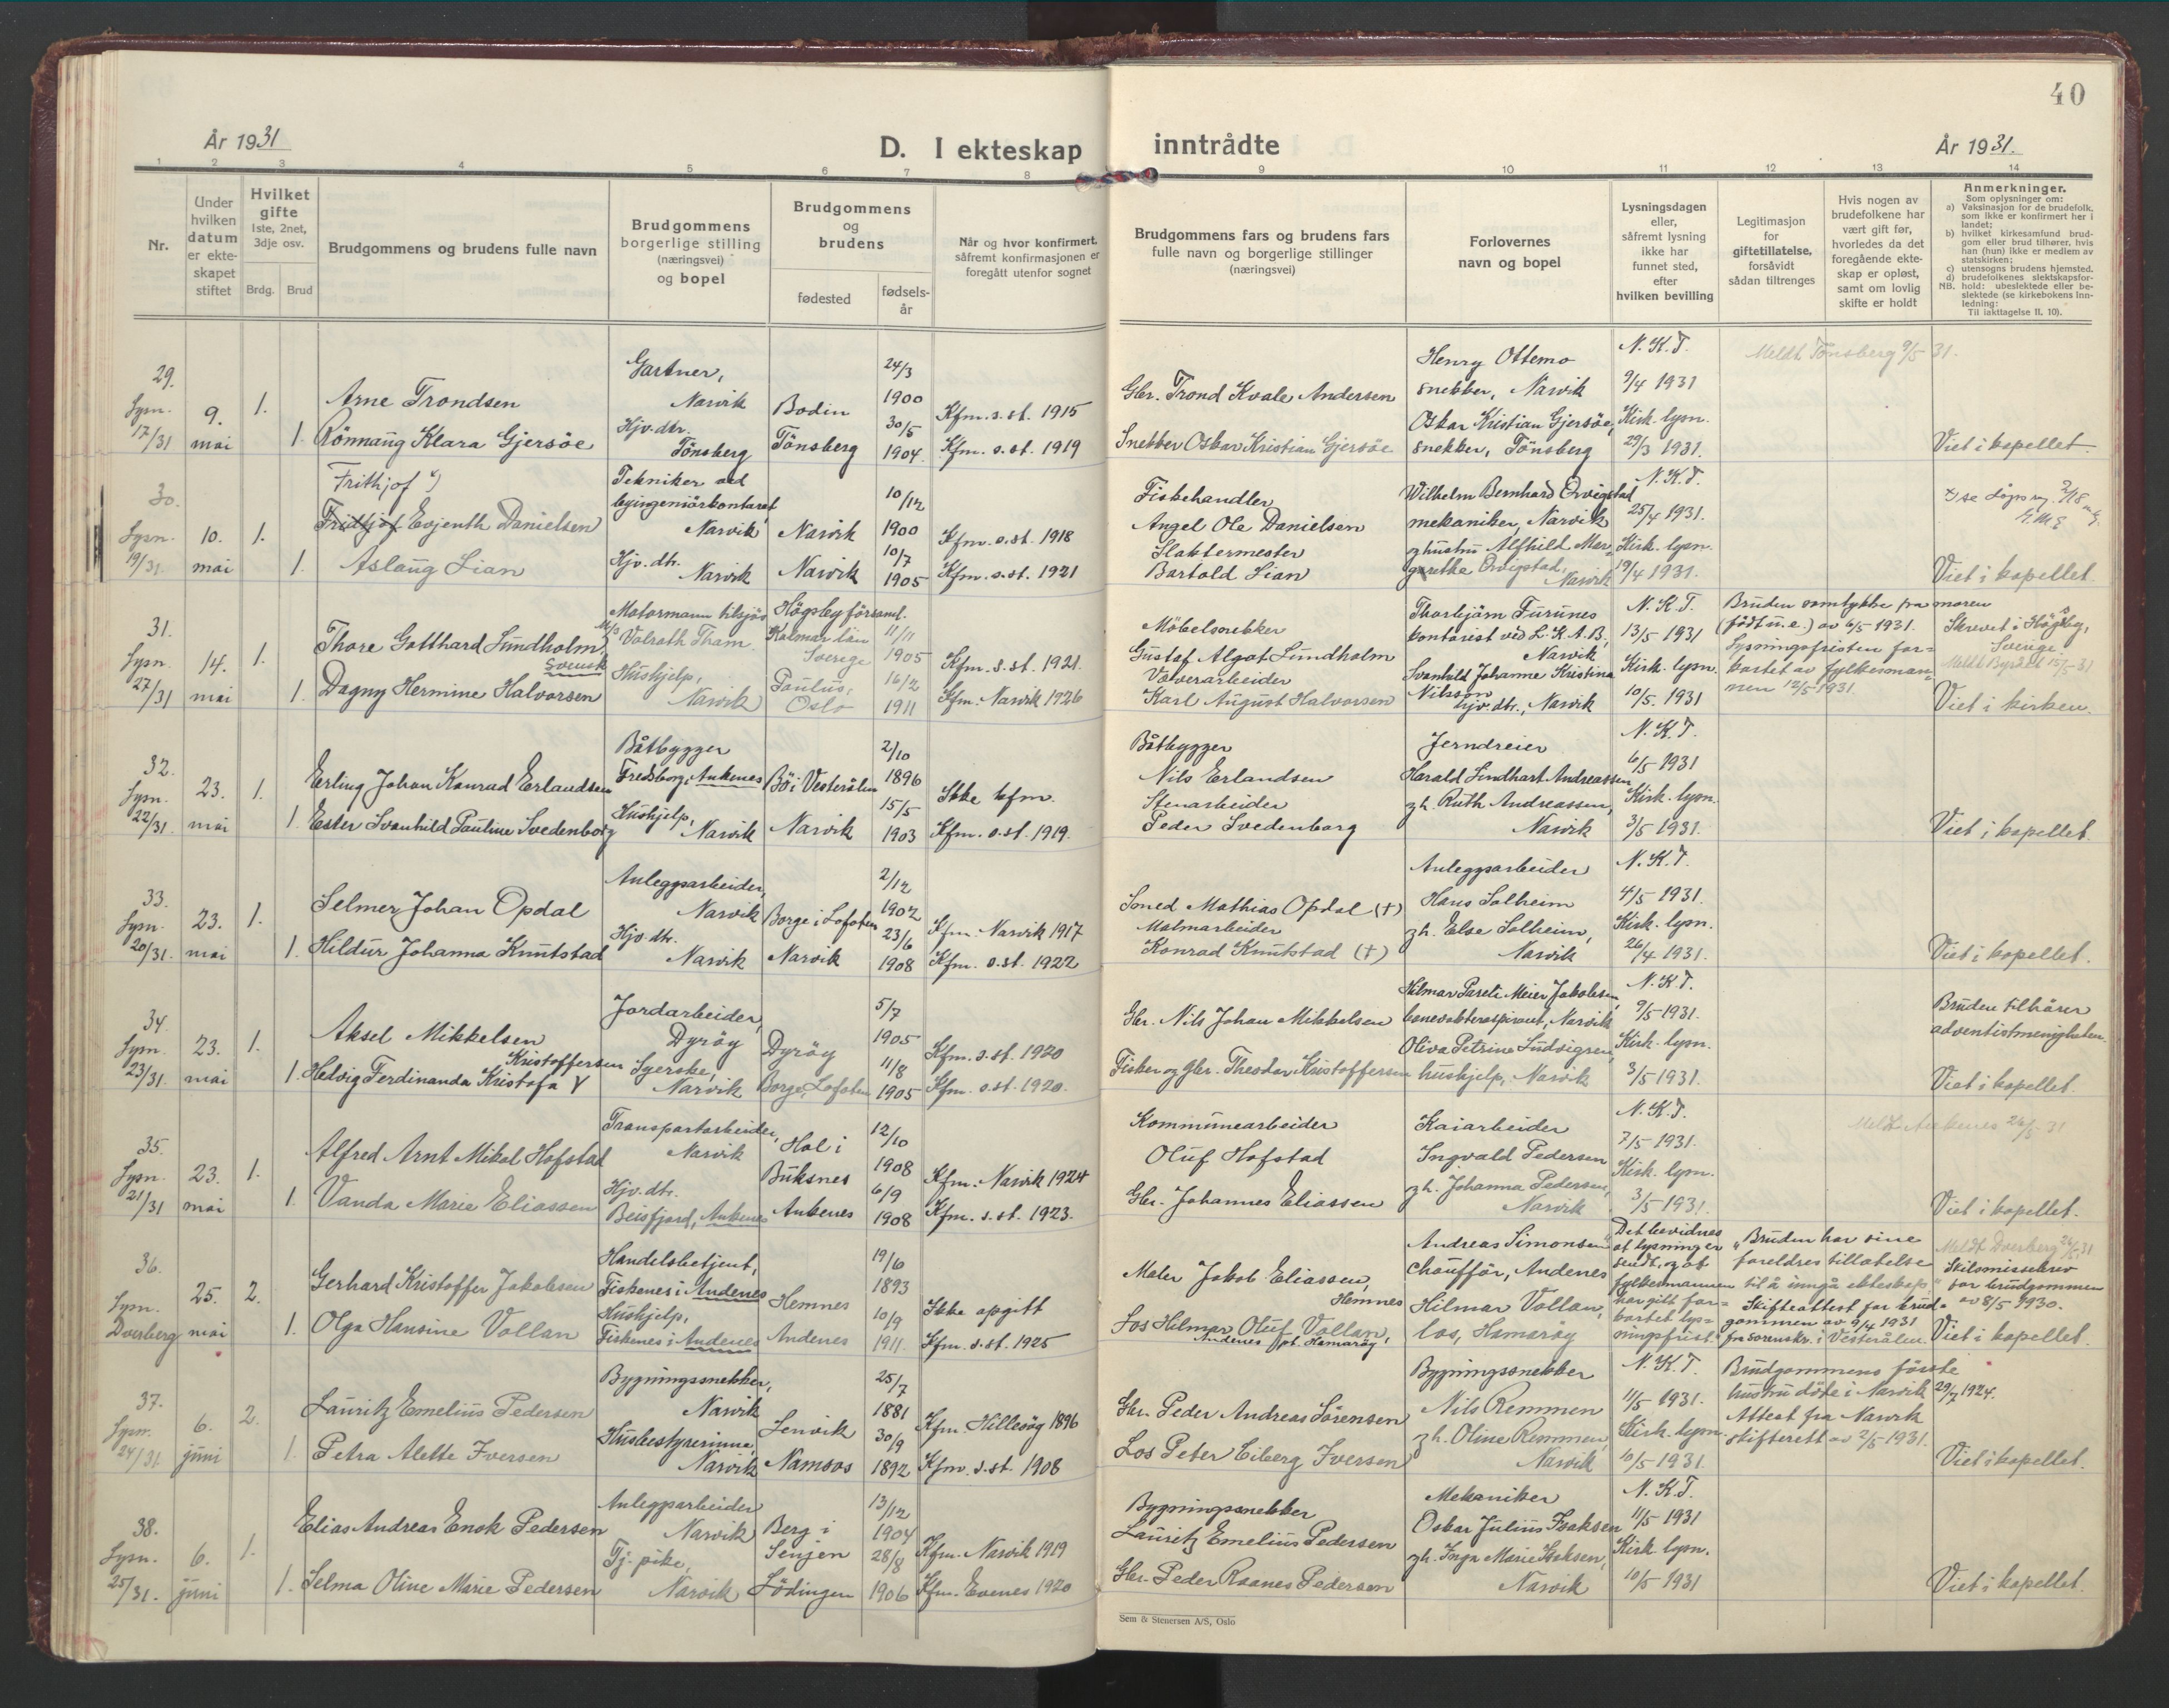 40
År 1931
D. I ekteskap inntrådte
År 1931.
1 2 3 4 5 6 7 8 9 10 11 12 13 14
Nr.
Under hvilken datum er ekteskapet stiftet
Hvilket gifte
1ste, 2net, 3dje osv.
Brdg. Brud
Brudgommens og brudens fulle navn
Brudgommens borgerlige stilling (næringsvei) og bopel
Brudgommens og brudens
fødested
fødselsår
Når og hvor konfirmert, såfremt konfirmasjonen er foregått utenfor sognet
Brudgommens fars og brudens fars fulle navn og borgerlige stillinger (næringsvei)
Forlovernes navn og bopel
Lysningsdagen eller, såfremt lysning ikke har funnet sted, efter hvilken bevilling
Legitimasjon for giftetillatelse, forsåvidt sådan tiltrenges
Hvis nogen av brudefolkene har vært gift før, hvorledes da det foregående ekteskap er opløst, samt om lovlig skifte er holdt
Anmerkninger.
Som oplysninger om:
a) Vaksinasjon for de brudefolk, som ikke er konfirmert her i landet;
b) hvilket kirkesamfund brudgom eller brud tilhører, hvis han (hun) ikke er medlem av statskirken;
c) utensogns brudens hjemsted.
d) brudefolkenes slektskapsforhold: ubeslektede eller beslektede (se kirkebokens Innledning:
NB.
Til iakttagelse II, 10).
29. Lysn. 17/31
9. mai
1. Arne Trondsen
Gartner, Narvik
Bodin
24/3 1900
Kfm. s. st. 1915
Gbr. Trond Kvale Andersen
Henry Ottemo snekker, Narvik
N. K. T. 9/4 1931
Meldt Tønsberg 9/5 31.
1 Rönnaug Klara Gjersöe
Hjv. dtr. Tönsberg
Tönsberg
30/5 1904
Kfm. s. st. 1919
Snekker Oskar Kristian Gjersöe
Oskar Kristian Gjersöe, snekker, Tönsberg
Kirk. lysn. 29/3 1931.
Viet i kapellet.
30. Lysn. 19/31
10. mai
1. Frithjof x) Fridtjof Evjenth Danielsen
Tekniker ved byingeniörkontoret Narvik
Narvik
10/12 1900
Kfm. s. st. 1918
Fiskehandler Angel Ole Danielsen
Wilhelm Bernhard Orvigstad mekaniker, Narvik
N. K. T. 25/4 1931.
1. Aslaug Lian
Hjv. dtr. Narvik
Narvik
10/7 1905
Kfm. s. st. 1921
Slaktermester Bartold Lian
g hustru Alfhild Margrethe Orvigstad, Narvik
Kirk. lysn. 19/4 1931.
Viet i kapellet.
31. Lysn. 27/31
14. mai
1. Thore Gotthard Lundholm, svensk
Motormann tilsjös M/S Valrath Tham
Högsby församl. Kalmar län Sverige
11/11 1905
Kfm. s. st. 1921.
Möbelsnekker Gustaf Algot Lundholm
Thorbjörn Furunes kontorist ved L. K. A. B., Narvik
N. K. T. 13/5 1931
Bruden samtykke fra moren (født u. e.) av 6/5 1931. Lysningsfristen forkortet av fylkesmannen 12/5-1931.
Skrevet i Högsby, Sverige.
1. Dagny Hermine Halvorsen
Hushjelp, Narvik
Paulus, Oslo
16/2 1911
Kfm. Narvik 1926
Væverarbeider Karl August Halvorsen
Svanhild Johanne Kristina Nilsson hjv. dtr., Narvik
Kirk. lysn. 10/5. 1931
Viet i kirken.
32. Lysn. 22/31.
23. mai
1. Erling Johan Konrad Erlandsen
Båtbygger Fredsborg, Ankenes
Bö i Vesterålen
2/10 1896
Ikke kfm.
Båtbygger Nils Erlandsen
Jerndreier Harald Lindhart Andreassen
N. K. T. 6/5 1931
1 Ester Svanhild Pauline Svedenborg
Hushjelp, Narvik
Narvik
15/5 1903
Kfm. s. st. 1919.
Stenarbeider Peder Svedenborg
g h. Ruth Andreassen, Narvik
Kirk. lysn. 3/5 1931.
Viet i kapellet.
33. Lysn. 20/31.
23. mai
1. Selmer Johan Opdal
Anleggsarbeider, Narvik
Borge i Lofoten
2/12 1902
Kfm. Narvik 1917
Smed Mathias Opdal (†)
Anleggsarbeider Hans Solheim
N. K. T. 4/5 1931.
1. Hildur Johanna Knutstad
Hjv. dtr. Narvik
Narvik
23/6 1908
Kfm. s. st. 1922
Malmarbeider Konrad Knutstad (†)
g h. Else Solheim, Narvik
Kirk. lysn. 26/4 1931.
Viet i kapellet.
34. Lysn. 23/31.
23. mai
1. Aksel Mikkelsen
Jordarbeider, Dyröy
Dyröy
5/7 1905
Kfm. s. st. 1920
Gbr. Nils Johan Mikkelsen
Hilmar Pareli Meier Jakobsen, banevokteraspirant, Narvik
N. K. T. 9/5 1931.
Bruden tilhörer adventistmenigheten.
1. Hedvig Ferdinanda Kristofa Kristoffersen
Syerske, Narvik
Borge, Lofoten
11/8 1905
Kfm. s. st. 1920.
Fisker og gbr. Theodor Kristoffersen
Oliva Petrine Ludvigsen, hushjelp, Narvik
Kirk. lysn. 3/5 1931.
Viet i kapellet.
35. Lysn. 21/31
23. mai
1. Alfred Arnt Mikal Hofstad
Transportarbeider, Narvik
Hol i Buksnes
12/10 1908
Kfm. Narvik 1924
Kommunearbeider Oluf Hofstad
Kaiarbeider Ingvald Pedersen
N. K. T. 7/5 1931.
Meldt Ankenes 26/5-31
1. Vanda Marie Eliassen
Hjv. dtr. Beisfjord, Ankenes
Ankenes
6/9 1908
Kfm. s. st. 1923.
Gbr. Johannes Eliassen
g h. Johanna Pedersen, Narvik
Kirk. lysn. 3/5 1931.
Viet i kapellet.
36. Lysn. Dverberg
25. mai
2. Gerhard Kristoffer Jakobsen
Handelsbetjent, Fiskenes i Andenes
Hemnes
19/6 1893
Ikke opgitt
Maler Jakob Eliassen, Hemnes
Andreas Simonsen chaufför, Andenes
"Det bevidnes at lysning er sendt, og at fylkesmannen har gitt forkortet lysningsfrist.
"Bruden har sine foreldres tillatelse til å inngå ekteskap." Skifteattest for brudgommen av 9/4 1931 fra sorenskr. i Vesterålen.
Meldt Dverberg 26/5 31
Skilsmissebrev for brudgommen av 8/5 1930.
1. Olga Hansine Vollan
Hushjelp, Fiskenes i Andenes
Andenes
10/9 1911.
Kfm. s. st. 1925
Los Hilmar Oluf Vollan, Andenes pt. Hamaröy,
Hilmar Vollan, los, Hamaröy
Viet i kapellet.
37. Lysn. 24/31
6. juni
2. Lauritz Emelius Pedersen
Bygningssnekker, Narvik
Lenvik
25/7 1881
Kfm. Hillesöy 1896
Gbr. Peder Andreas Sörensen
Bygningssnekker Nils Remmen
N. K. T. 11/5 1931.
Brudgommens förste hustru döde i Narvik 29/7 1924. Attest fra Narvik skifterett av 2/5 1931.
1. Petra Alette Iversen
Husbestyrerinne, Narvik
Namsos
30/9 1892
Kfm. s. st. 1908
Los Peter Eiberg Iversen
g h. Oline Remmen, Narvik
Kirk. lysn. 10/5 1931.
Viet i kapellet.
38. Lysn. 25/31.
6. juni
1. Elias Andreas Enok Pedersen
Anleggsarbeider Narvik
Berg i Senjen
13/12 1904
Kfm. Narvik 1919
Bygningssnekker Lauritz Emelius Pedersen
Mekaniker Oskar Julius Isaksen
N. K. T. 11/5 1931
1. Selma Oline Marie Pedersen
Tj. pike, Narvik
Lödingen
28/8 1906
Kfm. Evenes 1920
Gbr. Peder Raanes Pedersen
g h. Inga Marie Isaksen, Narvik
Kirk. lysn. 10/5 1931
Viet i kapellet.
Sem & Stenersen A/S, Oslo